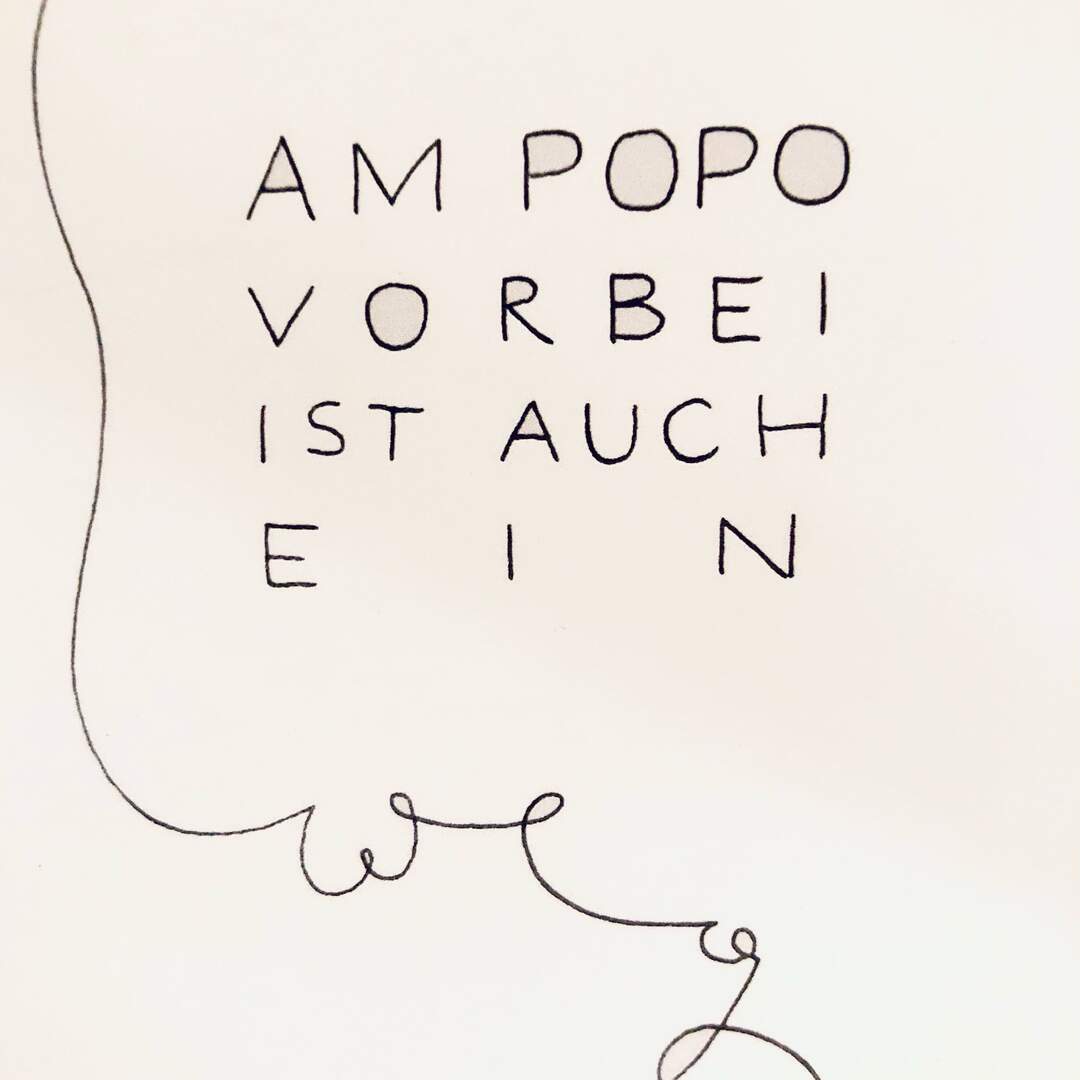 AM POPO
VORBEI
IST AUCH
EIN
Weg